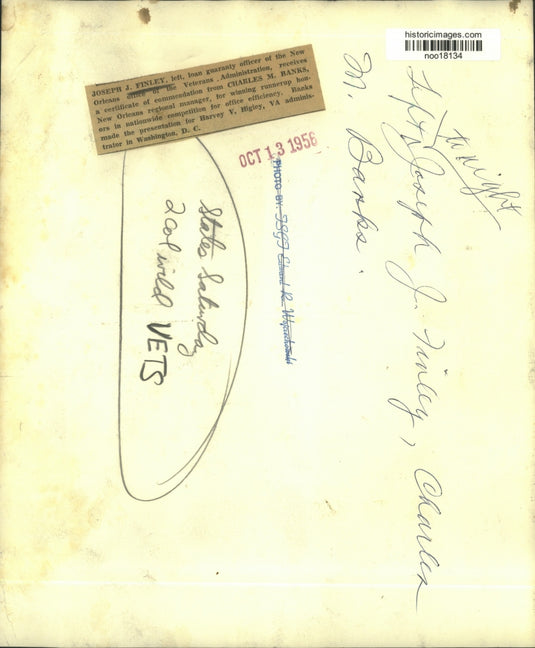 historicimages.com
noo18134
JOSEPH J. FINLEY, left, loan guaranty officer of the New
Orleans office of the Veterans Administration, receives
a certificate of commendation from CHARLES M. BANKS,
New Orleans regional manager, for winning runnerup hon-
ors in nationwide competition for office efficiency. Banks
made the presentation for Harvey V. Higley, VA adminis-
trator in Washington, D. C.
OCT 13 1956
PHOTO BY:
States Saturday
2 col wild VETS
Left to right
Joseph J. Finley, Charles
M. Banks.